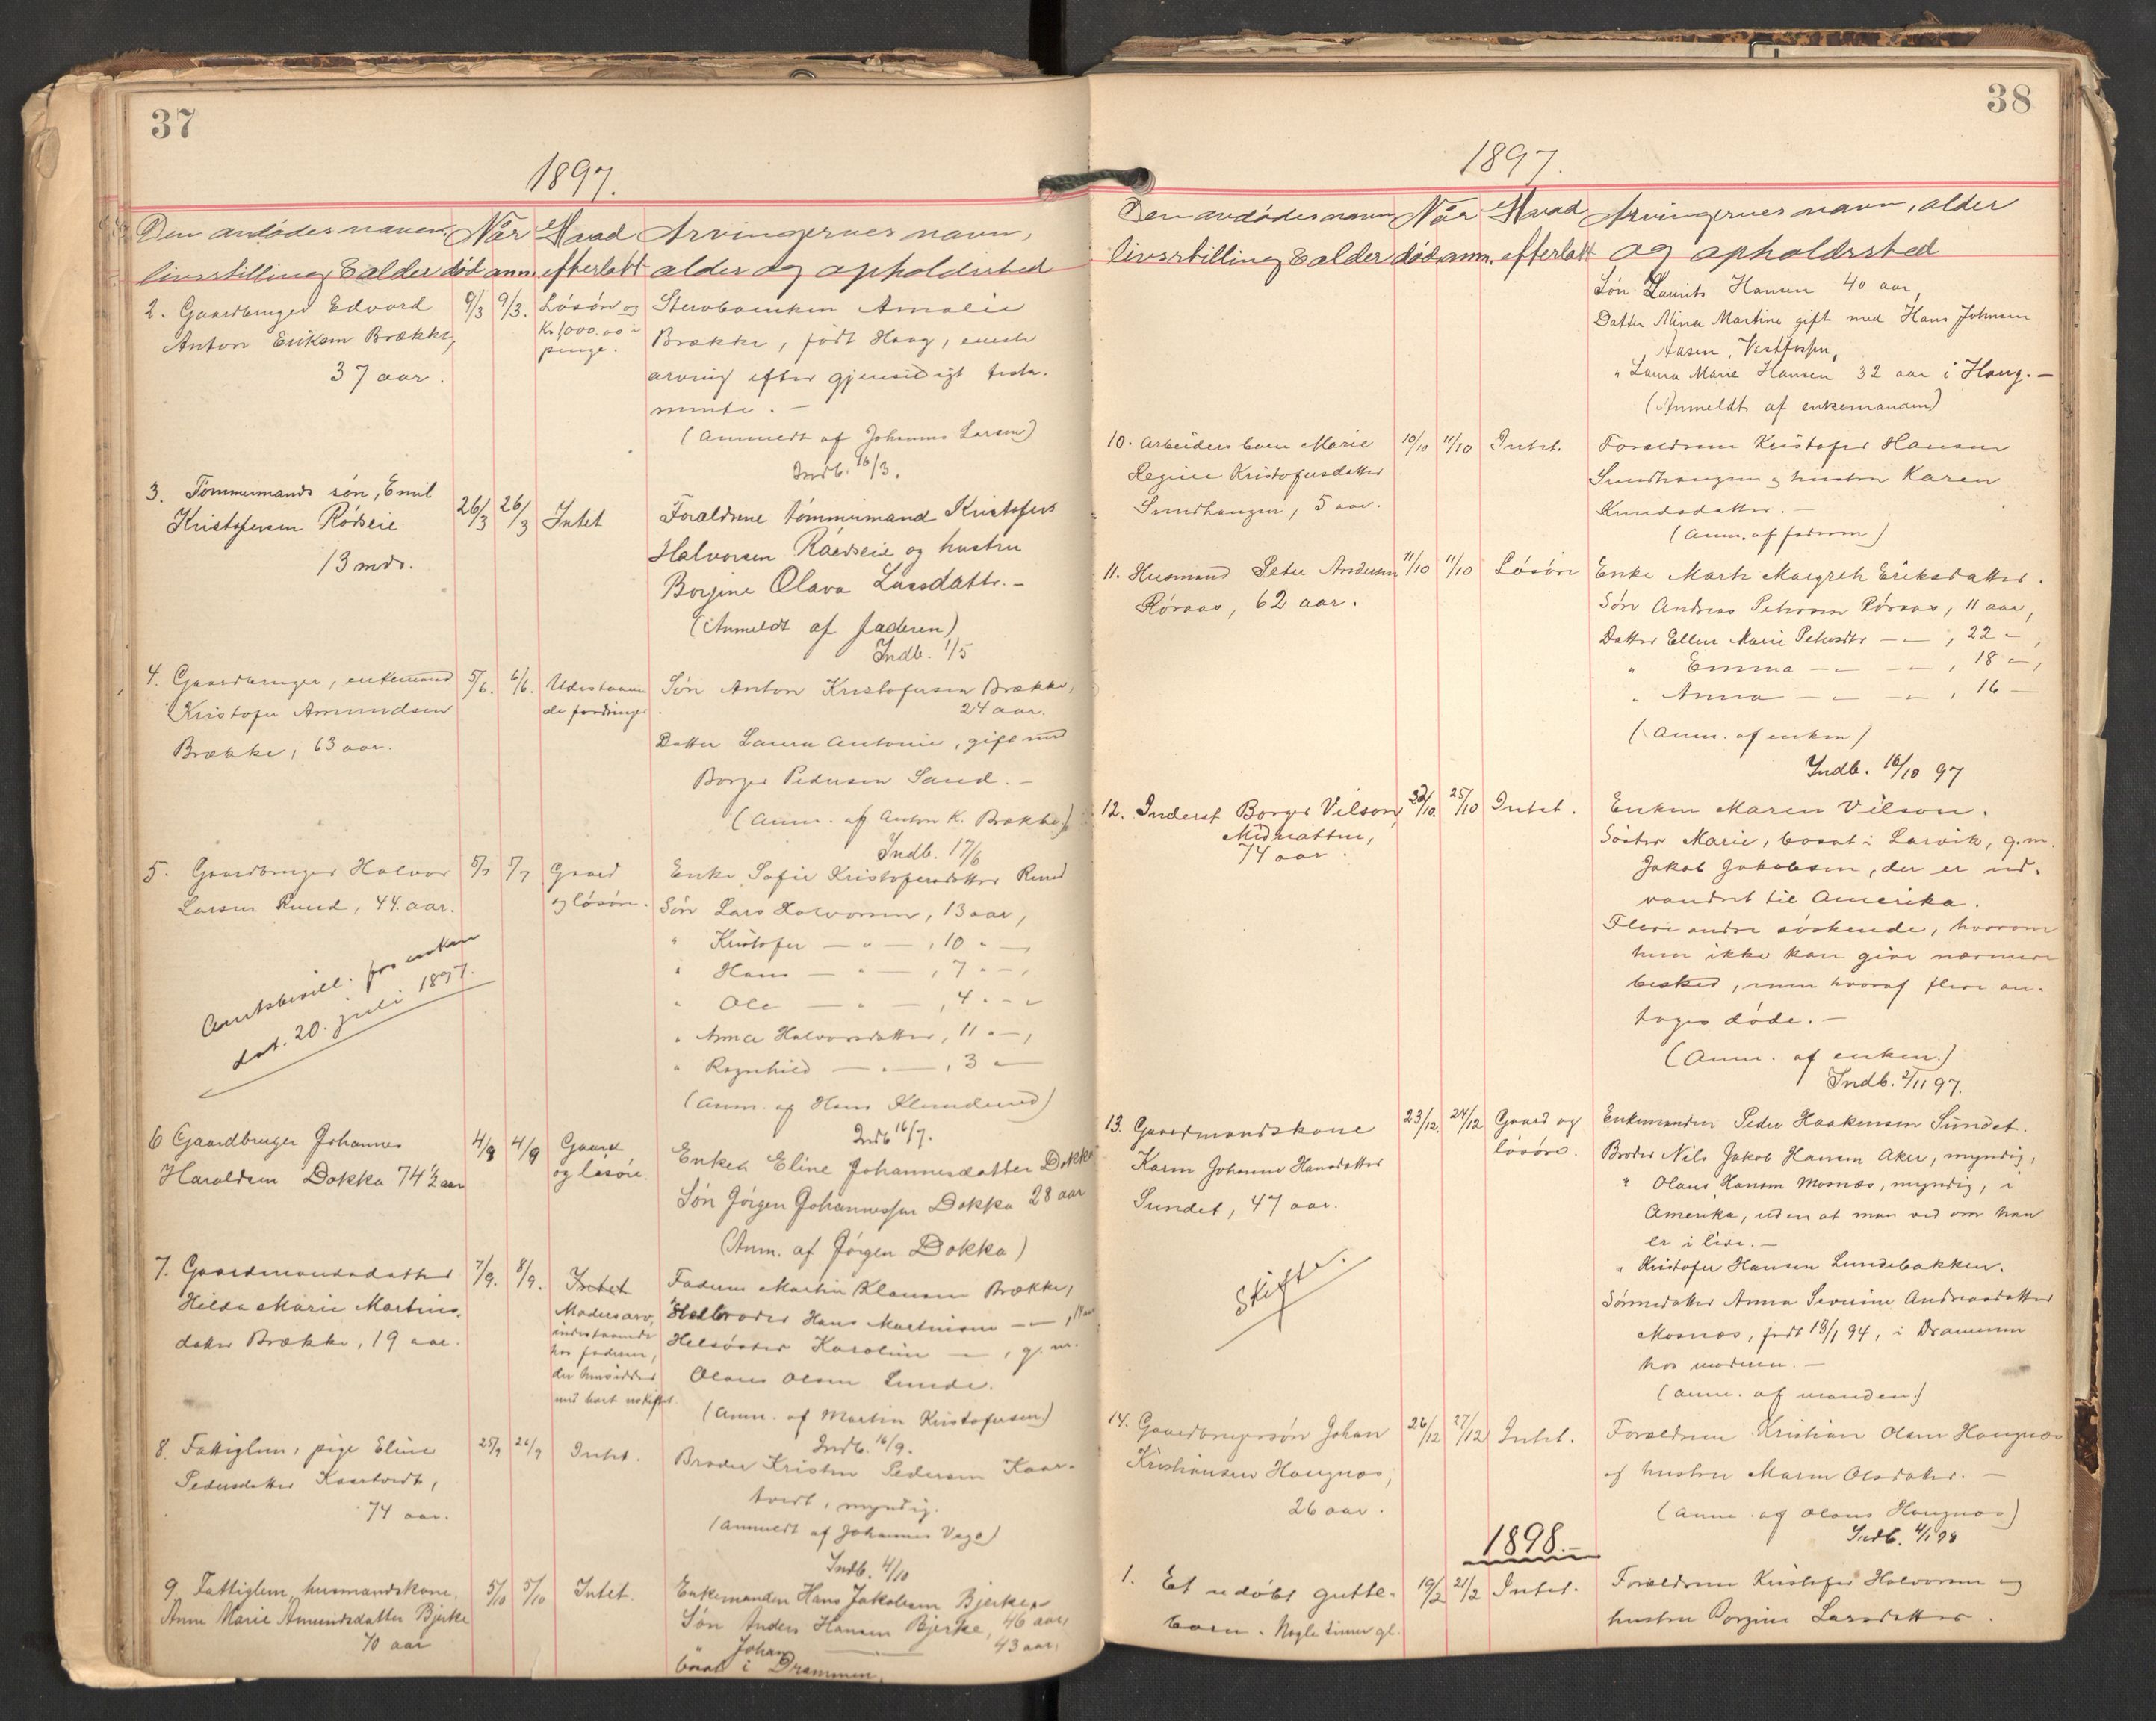 37
1897.
Den avdødes navn, Når Hvad Arvingernes navn,
livsstilling & alder død anm. efterlatt alder og opholdssted
2. Gaardbruger Edvard 9/3 9/3. Løsøre og Stervboenken Amalie
Anton Eriksen Brække, Kr. 1000.00 i Brække, født Haug, eneste
37 aar. penge. arving efter gjensidigt testa-
mente. -
(anmeldt af Johannes Larsen)
Indb. 16/3.
3. Tømmermands søn, Emil 26/3 26/3 Intet Forældrene tømmermand Kristofer
Kristofersen Rødseie Halvorsen Rødseie og hustru
13 mdr. Borgine Olava Larsdattr. -
(Anmeldt af faderen)
Indb. 1/5
4. Gaardbruger, enkemand 5/6. 6/6. Udestaaen- Søn Anton Kristofersen Brække,
Kristofer Amundsen de fordringer. 24 aar.
Brække, 63 aar. Datter Laura Antonie, gift med
Borger Pedersen Sand. -
(Anm. af Anton K. Brække)
Indb. 17/6
5. Gaardbruger Halvor 5/7 5/7 Gaard Enke Sofie Kristofersdatter Ruud
Larsen Ruud, 44 aar. og løsøre. Søn Lars Halvorsen, 13 aar,
" Kristofer — " —, 10 " —,
" Hans — " —, 7 " —,
Amtsbevill. for enken " Ole — " —, 4 " —
dat. 20. juli 1897. " Anna Halvorsdatter, 11 " —,
" Ragnhild — " —, 3 " —
(Anm. af Hans )
Indb. 16/7.
6 Gaardbruger Johannes 4/9 4/9 Gaard Enken Eline Johannesdatter Dokka
Haraldsen Dokka 74 1/2 aar og løsøre. Søn Jørgen Johannessen Dokka 28 aar
(Anm. af Jørgen Dokka)
7. Gaardmandsdatter 7/9. 8/9. Intet Faderen Martin Klausen Brække,
Hilda Marie Martins- Modersarv, Helbroder Hans Martinsen — —,
datter Brække, 19 aar. indestaaende Helsøster Karoline — , g. m.
hos faderen, Olaus Olsen Lunde.
der hensidder
med boet uskiftet. (Anm. af Martin Kristofersen)
Indb. 16/9.
8. Fattiglem, pige Eline 25/9 26/9 Intet. Broder Kristen Pedersen Kaar-
Pedersdatter Kaartvedt, tvedt, myndig.
74 aar. (anmeldt af Johannes Vego)
Indb. 4/10
9. Fattiglem, husmandskone 5/10 5/10 Intet. Enkemanden Hans Jakobsen Bjerke -
Anne Marie Amundsdatter Bjerke Søn Anders Hansen Bjerke, 46 aar,
70 aar " Johan — 43 aar,
bosat i Drammen.
38
1897.
Den avdødes navn Når Hvad Arvingernes navn, alder
livsstilling & alder død anm. efterlatt og opholdssted
Søn Laurits Hansen 40 aar,
Datter Mina Martine gift med Hans Johnsen
Aasen, Vestfossen,
" Laura Marie Hansen 32 aar i Haug. -
(Anmeldt af enkemanden)
10. Arbeiders barn Marie 10/10 11/10 Intet. Forældrene Kristofer Hansen
Regine Kristofersdatter Sundhaugen og hustru Karen
Sundhaugen, 5 aar. Knudsdatter. -
(Anm. af faderen)
11. Husmand Peter Andersen 11/10 11/10 Løsøre Enke Marte Margrete Eriksdatter.
Røraas, 62 aar. Søn Andreas Petersen Røraas, 11 aar,
Datter Ellen Marie Petersdtr — —, 22 —,
" Emma — — —, 18 —,
" Anna — — —, 16 —
(Anm. af enken)
Indb. 16/10 97
12. Inderst Borger Vilson, 22/10. 25/10 Intet. Enken Maren Vilson.
Midnatten, Søster Marie, bosat i Larvik, g.m.
74 aar. Jakob Jakobsen, der er ud-
vandret til Amerika.
Flere andre søskende, hvorom
hun ikke kan give nærmere
besked, men hvoraf flere an-
tages døde. -
(Anm. af enken.)
Indb. 2/11 97.
13. Gaardmandskone 23/12. 24/12 Gaard og Enkemanden Peder Haakensen Sundet.
Karen Johanne Hansdatter løsøre. Broder Nils Jakob Hansen Aker, myndig,
Sundet, 47 aar. " Olaus Hansen Mosnæs, myndig, i
Amerika, uden at man ved om han
er i live. -
Skifte. " Kristofer Hansen Lundebakken.
Sønnedatter Anna Severine Andreasdatter
Mosnæs, født 19/1 94, i Drammen
hos moderen. -
(Anm. af manden.)
14. Gaardbrugersøn Johan 26/12 27/12 Intet. Forældrene Kristian Olsen Haugnæs
Kristiansen Haugnæs, og hustru Maren Olsdatter. -
26 aar. (Anm. af Olaus Haugnæs)
Indb. 4/1 98
1898. -
1. Et udøbt gutte- 19/2 21/2 Intet. Forældrene Kristofer Halvorsen og
barn. Nogle timer gl. hustru Borgine Larsdatter.